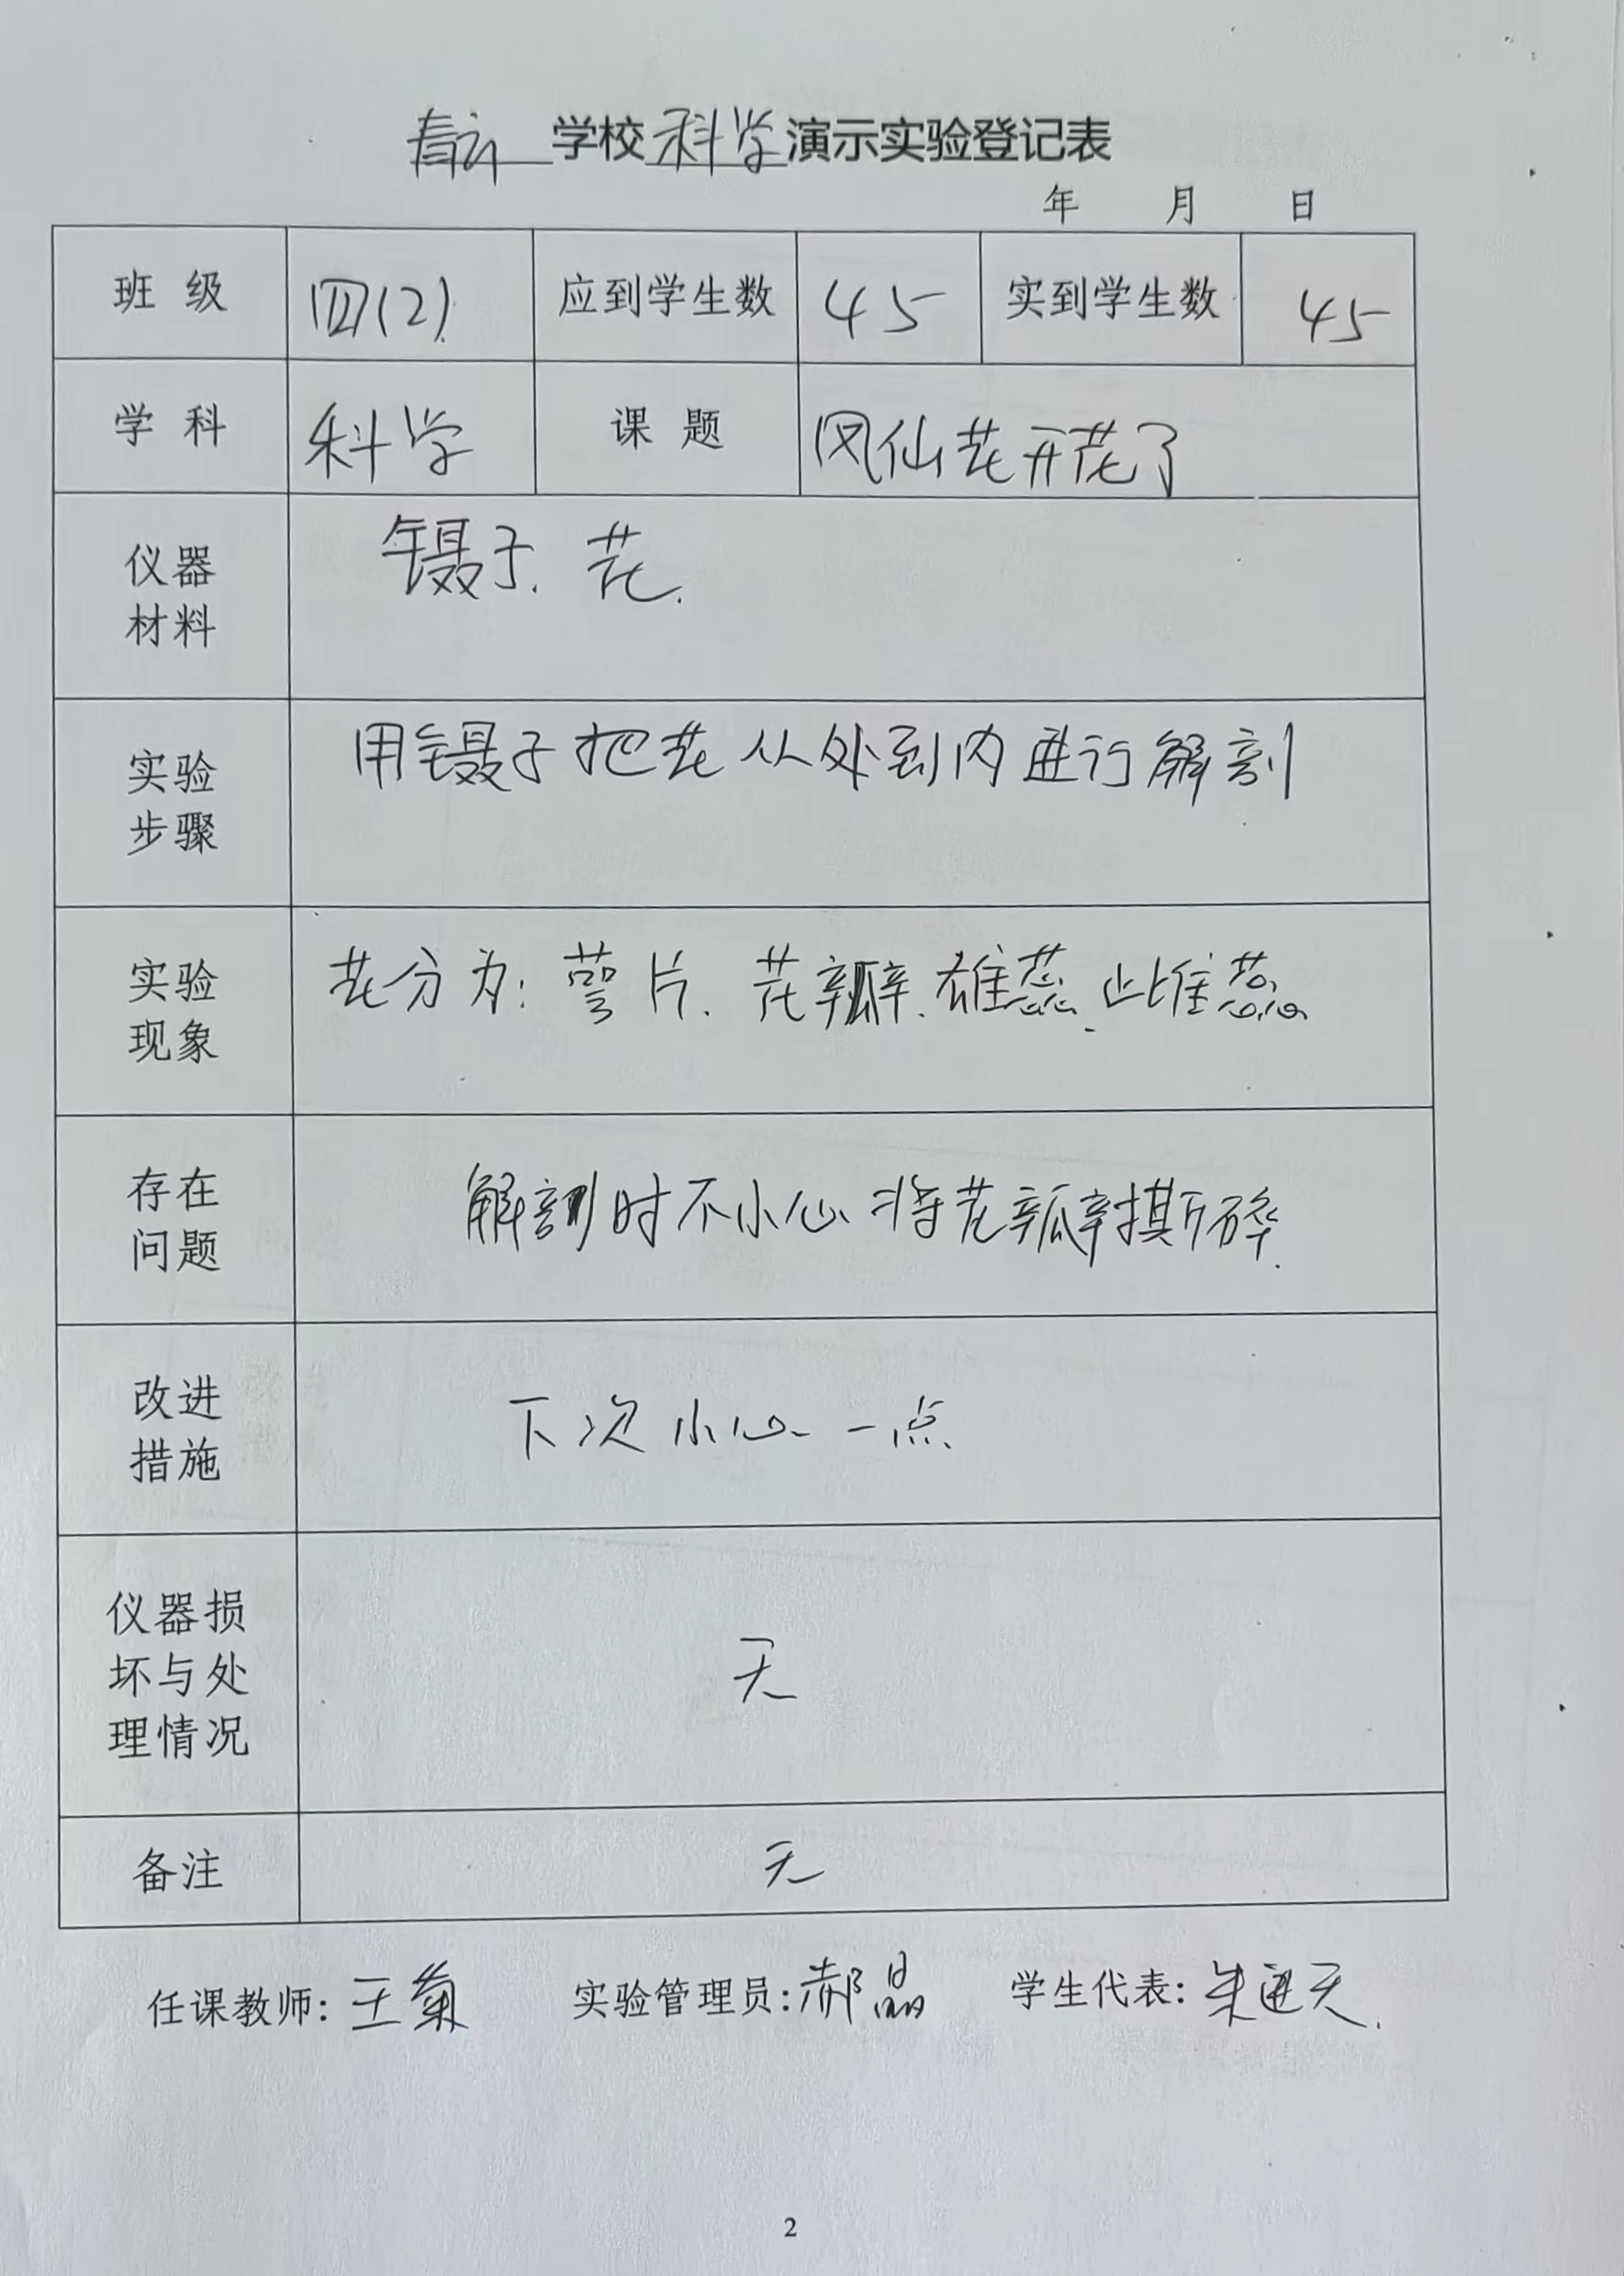 学校科学演示实验登记表
年 月 日
班 级 四(2). 应到学生数 45 实到学生数 45
学 科 科学 课 题 凤仙花开花了
仪器
材料
镊子. 花.
实验
步骤
用镊子把花从外到内进行解剖
实验
现象
花分为: 萼片. 花瓣. 雄蕊. 雌蕊
存在
问题
解剖时不小心将花瓣撕碎.
改进
措施
下次小心一点.
仪器损
坏与处
理情况
无
备注 无
任课教师: 王菊 实验管理员: 郝晶 学生代表: 朱天.
2